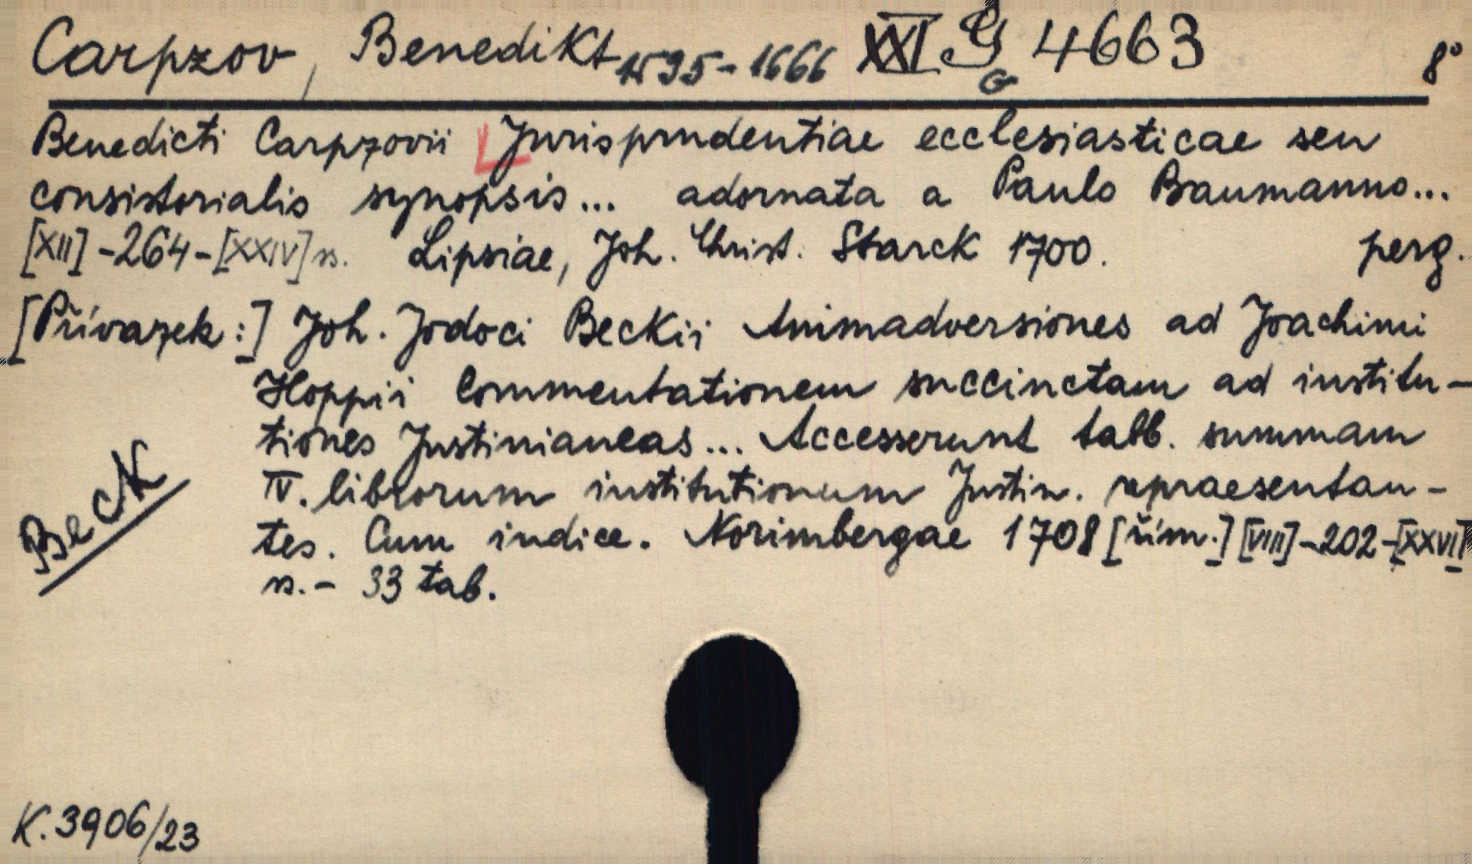 Carpzov, Benedikt 1595-1666 XXI G G 4663 8°
Benedicti Carpzovii Jurisprudentiae ecclesiasticae seu
consistorialis synopsis... adornata a Paulo Baumanno...
[XII]-264-[XXIV] s. Lipsiae, Joh. Christ. Starck 1700. perg.
[Přívazek:] Joh. Jodoci Beckii Animadversiones ad Joachimi
Hoppii Commentationem succinctam ad institu-
tiones Justinianeas... Accesserunt tabb. summam
IV. librorum institutionum Justin. repraesentan-
tes. Cum indice. Norimbergae 1708 [řím.] [VIII]-202-[XXVI]
s. - 33 tab.
Beck
K. 3906/23